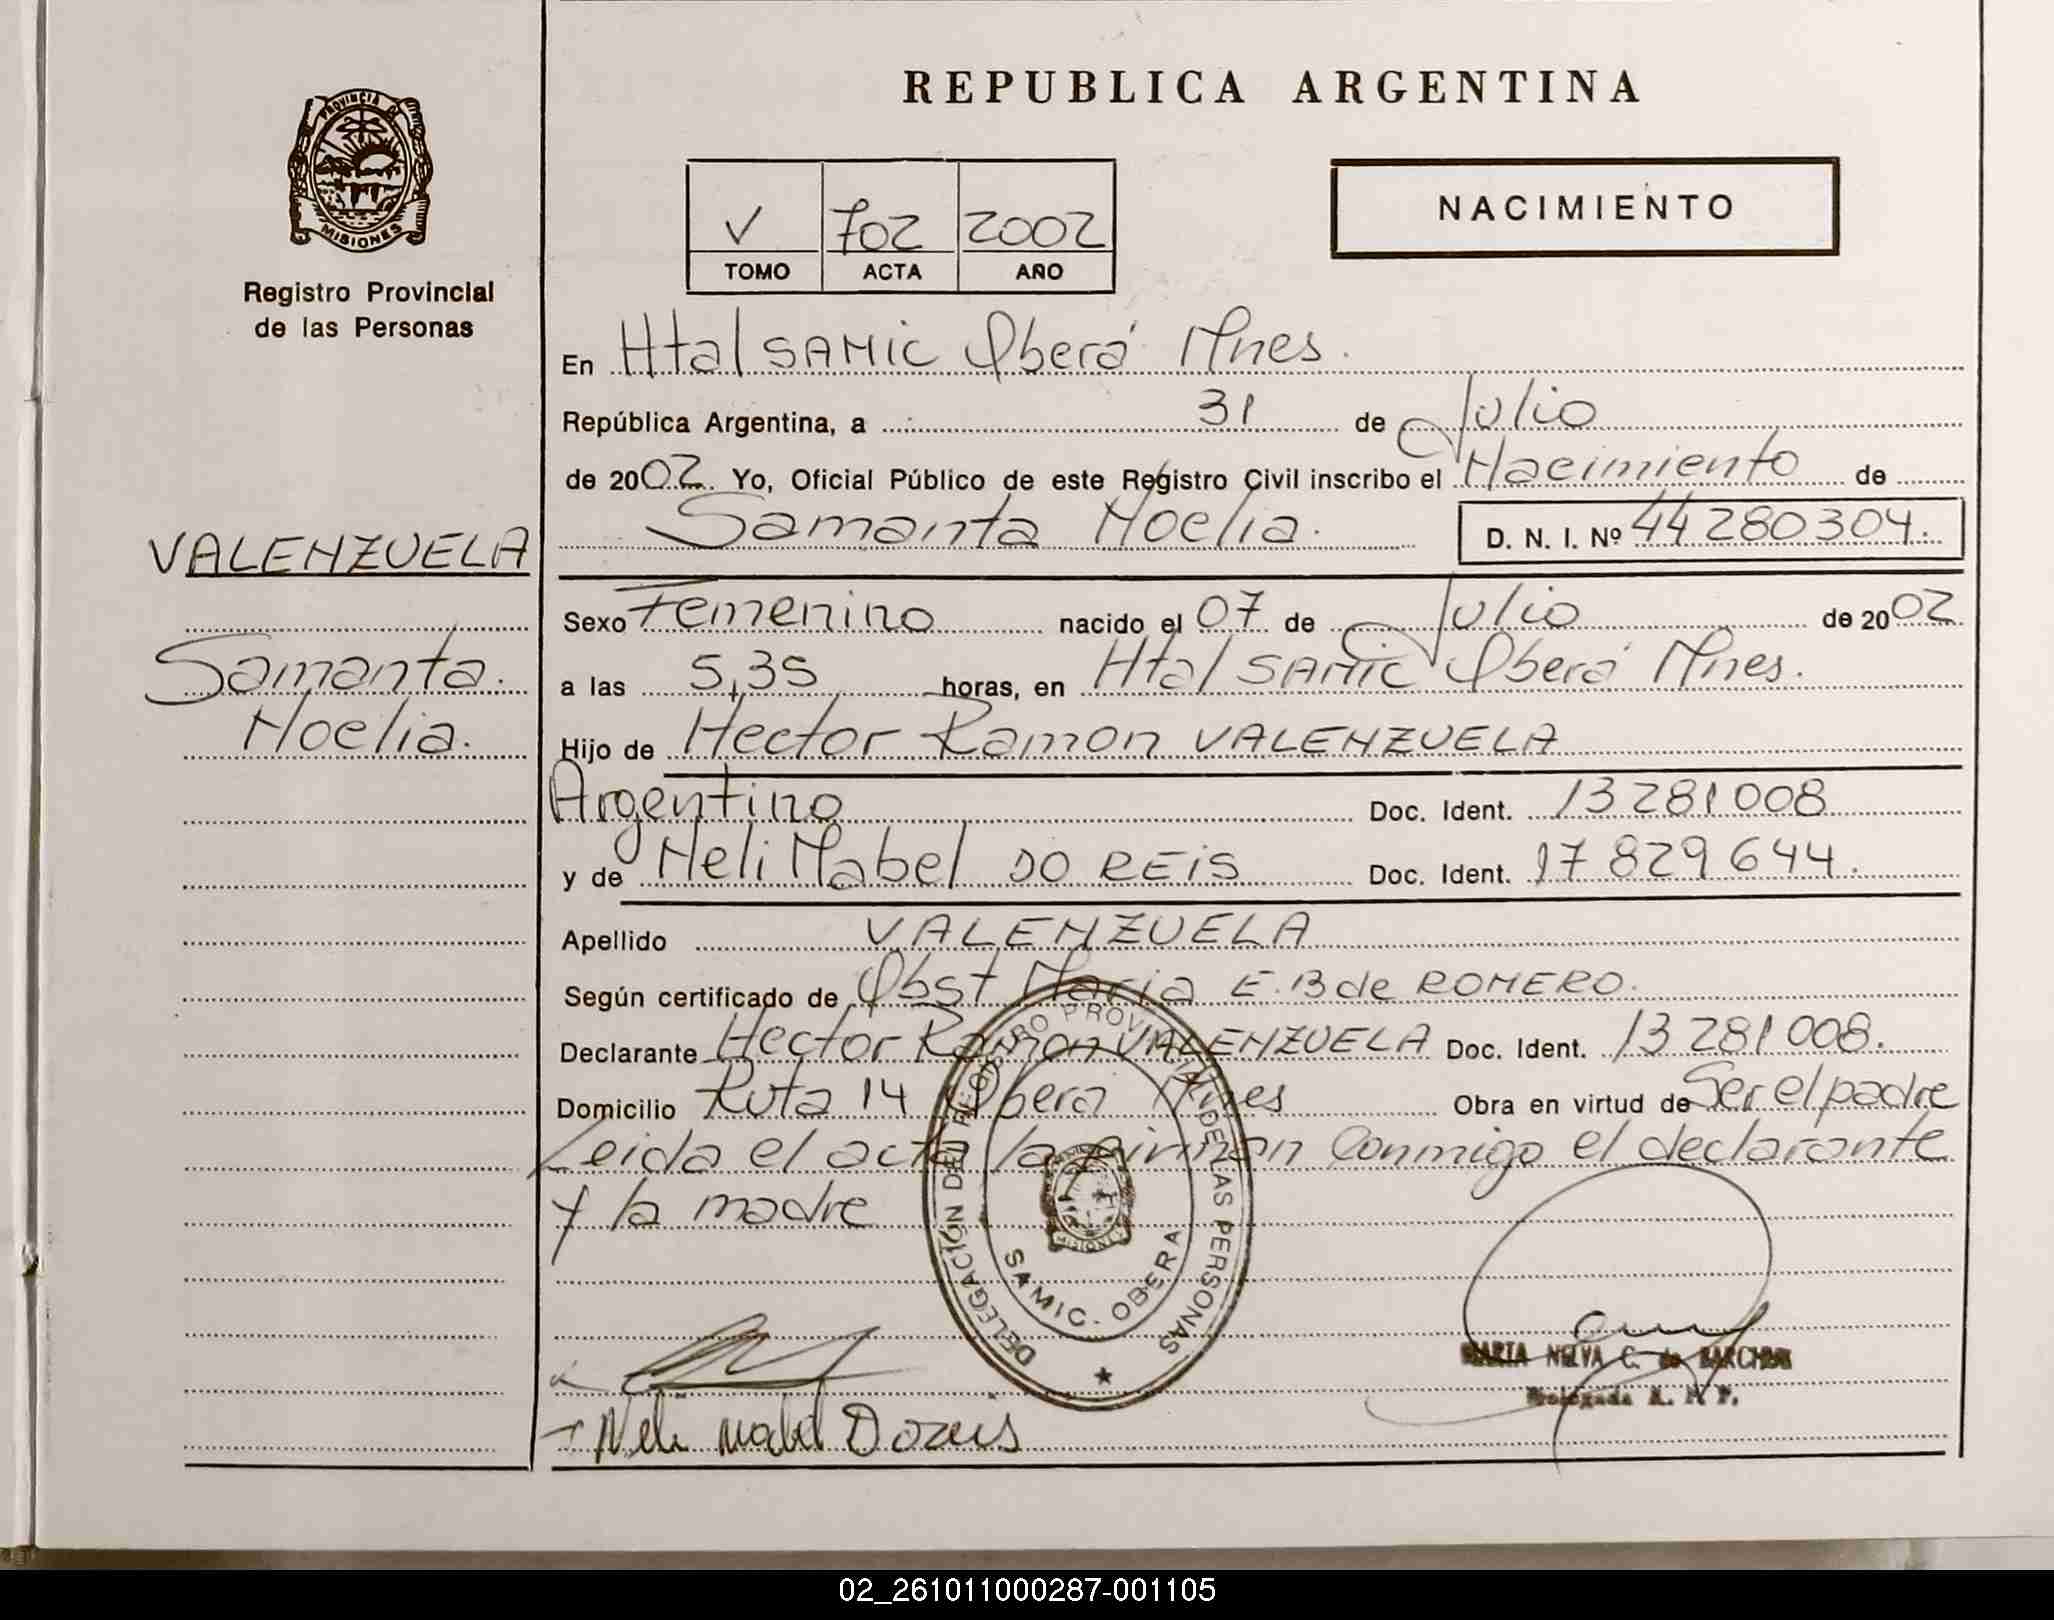 REPUBLICA ARGENTINA
PROVINCIA DE
MISIONES
Registro Provincial
de las Personas
V 702 2002
TOMO ACTA AÑO
NACIMIENTO
En Htal SAMIC Oberá Mnes.
República Argentina, a 31 de Julio
de 2002. Yo, Oficial Público de este Registro Civil inscribo el Nacimiento de
Samanta Noelia. D. N. I. Nº 44 280304.
VALENZUELA
Samanta
Noelia.
Sexo Femenino nacido el 07 de Julio de 2002
a las 5,35 horas, en Htal SAMIC Oberá Mnes.
Hijo de Hector Ramon VALENZUELA
Argentino Doc. Ident. 13281008
y de Neli Mabel DO REIS Doc. Ident. 17829644.
Apellido VALENZUELA
Según certificado de Obst Maria E. B de ROMERO.
Declarante Hector Ramon VALENZUELA Doc. Ident. 13281008.
Domicilio Ruta 14 Obera Mnes Obra en virtud de Ser el padre
Leida el acta la firman conmigo el declarante
y la madre
DELEGACIÓN DEL REGISTRO PROVINCIAL DE LAS PERSONAS
MISIONES
SAMIC. OBERA
MARIA NELVA C. de
R. P. P.
Neli Mabel
02_261011000287-001105